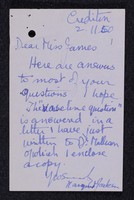 Crediton
2 11
Dear Miss James
Here are answers
to most of your
questions I hope
The "
time question"
is answered in a
letter I have just
written to Dr
of which I enclose
a copy.
Yours
Margaret